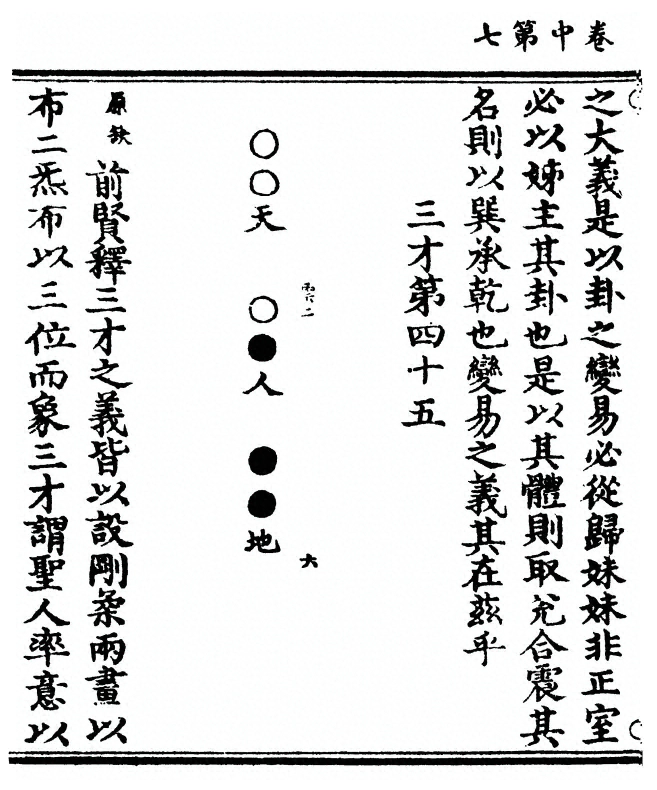 卷中第七
之大義是以卦之變易必從歸妹妹非正室
必以娣主其卦也是以其體則取兌合震其
名則以巽承乾也變易之義其在茲乎
三才第四十五
六
○○天 ○●人 ●●地
原缺
前賢釋三才之義皆以設剛柔兩畫以
布二炁布以三位而象三才謂聖人率意以